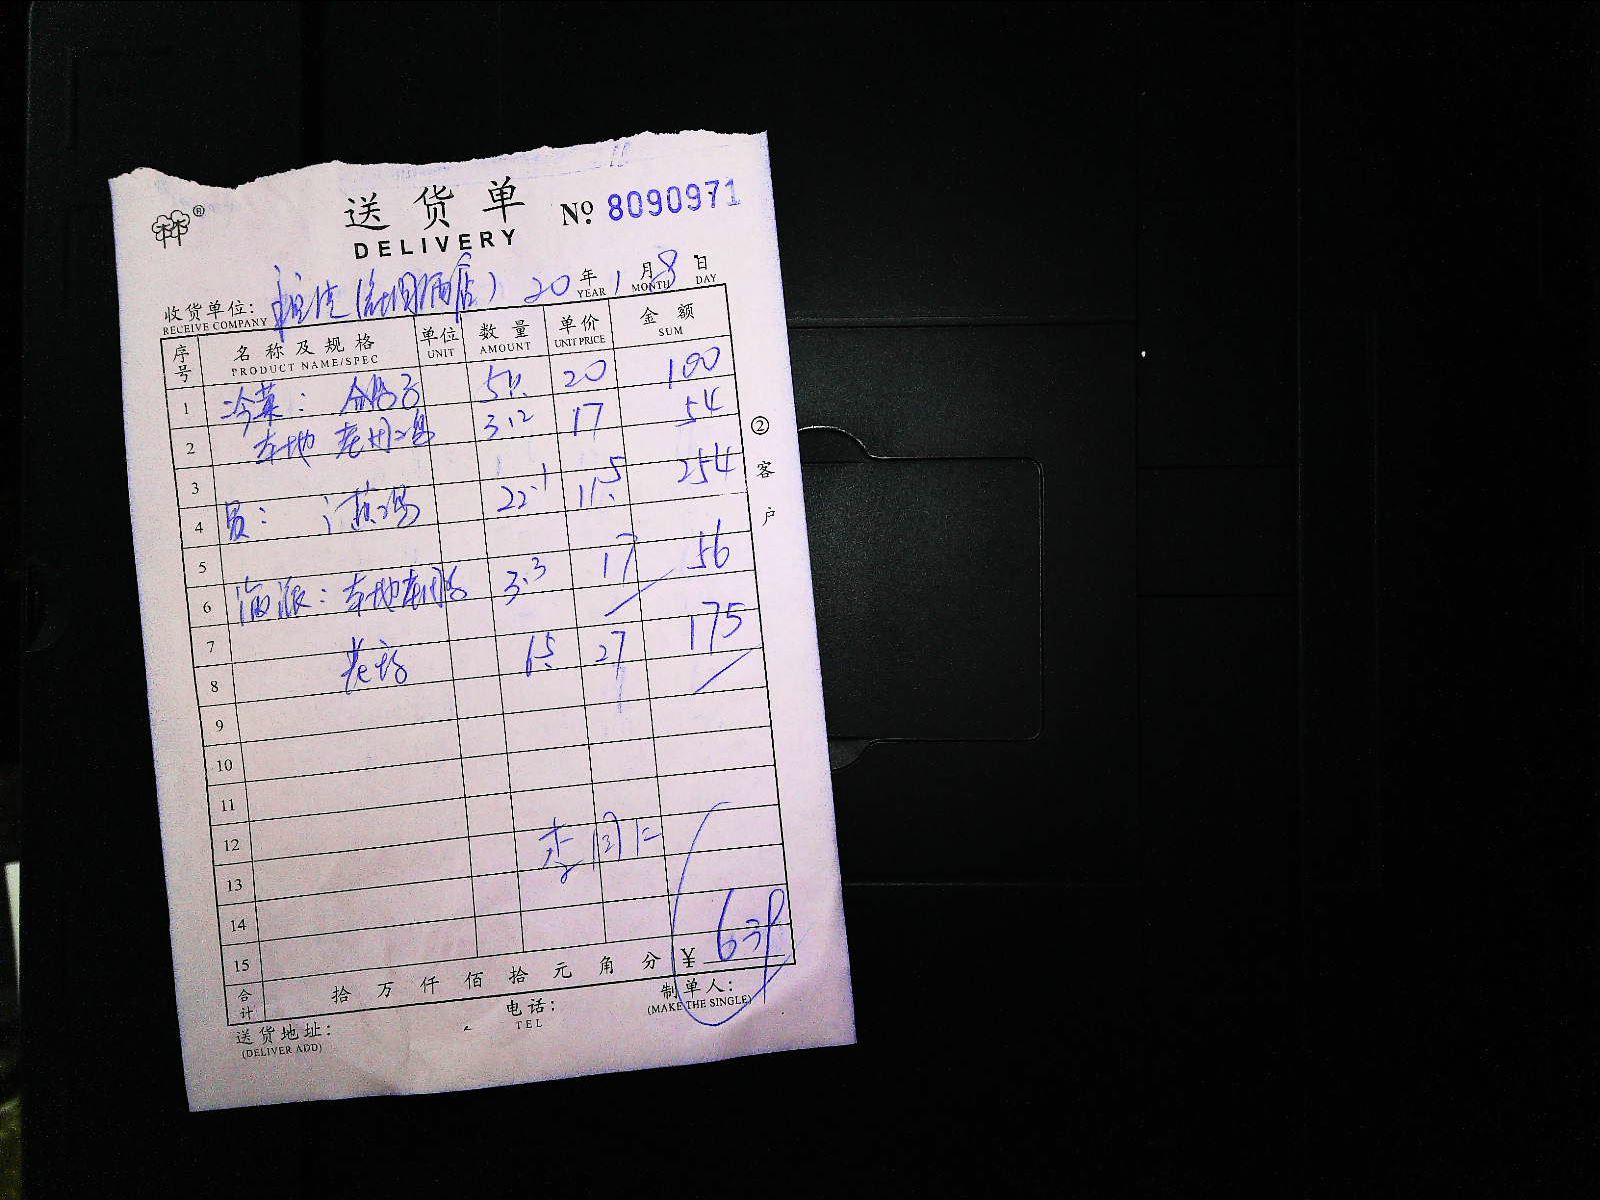 送货单
DELIVERY
№ 8090971
收货单位:
RECEIVE COMPANY
20 年 1 月 8 日
YEAR MONTH DAY
序号 名称及规格 单位 数量 单价 金额
PRODUCT NAME/SPEC UNIT AMOUNT UNIT PRICE SUM
1 冷菜: 20 100
2 本地 3.2 17 54
3
4 22.1 11.5 254
5
6 海派: 本地 3.3 17 56
7
8 6.5 27 175
9
10
11
12
13
14
15
639
合计 拾 万 仟 佰 拾 元 角 分 ¥
送货地址:
(DELIVER ADD)
电话:
TEL
制单人:
(MAKE THE SINGLE)
② 客户